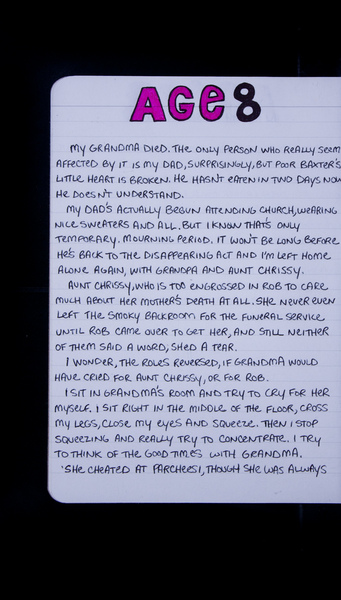 AGE 8
MY GRANDMA DIED. THE ONLY PERSON WHO REALLY SEEM
AFFECTED BY IT IS MY DAD, SURPRISINGLY, BUT POOR BAXTER'S
LITTLE HEART IS BROKEN. HE HASN'T EATEN IN TWO DAYS NOW
HE DOESN'T UNDERSTAND.
MY DAD'S ACTUALLY BEGUN ATTENDING CHURCH, WEARING
NICE SWEATERS AND ALL. BUT I KNOW THAT'S ONLY
TEMPORARY. MOURNING PERIOD. IT WON'T BE LONG BEFORE
HE'S BACK TO THE DISAPPEARING ACT AND I'M LEFT HOME
ALONE AGAIN, WITH GRANDPA AND AUNT CHRISSY.
AUNT CHRISSY, WHO IS TOO ENGROSSED IN ROB TO CARE
MUCH ABOUT HER MOTHER'S DEATH AT ALL. SHE NEVER EVEN
LEFT THE SMOKY BACKROOM FOR THE FUNERAL SERVICE
UNTIL ROB CAME OVER TO GET HER, AND STILL NEITHER
OF THEM SAID A WORD, SHED A TEAR.
I WONDER, THE ROLES REVERSED, IF GRANDMA WOULD
HAVE CRIED FOR AUNT CHRISSY, OR FOR ROB.
I SIT IN GRANDMA'S ROOM AND TRY TO CRY FOR HER
MYSELF. I SIT RIGHT IN THE MIDDLE OF THE FLOOR, CROSS
MY LEGS, CLOSE MY EYES AND SQUEEZE. THEN I STOP
SQUEEZING AND REALLY TRY TO CONCENTRATE. I TRY
TO THINK OF THE GOOD TIMES WITH GRANDMA.
'SHE CHEATED AT PARCHEESI, THOUGH SHE WAS ALWAYS